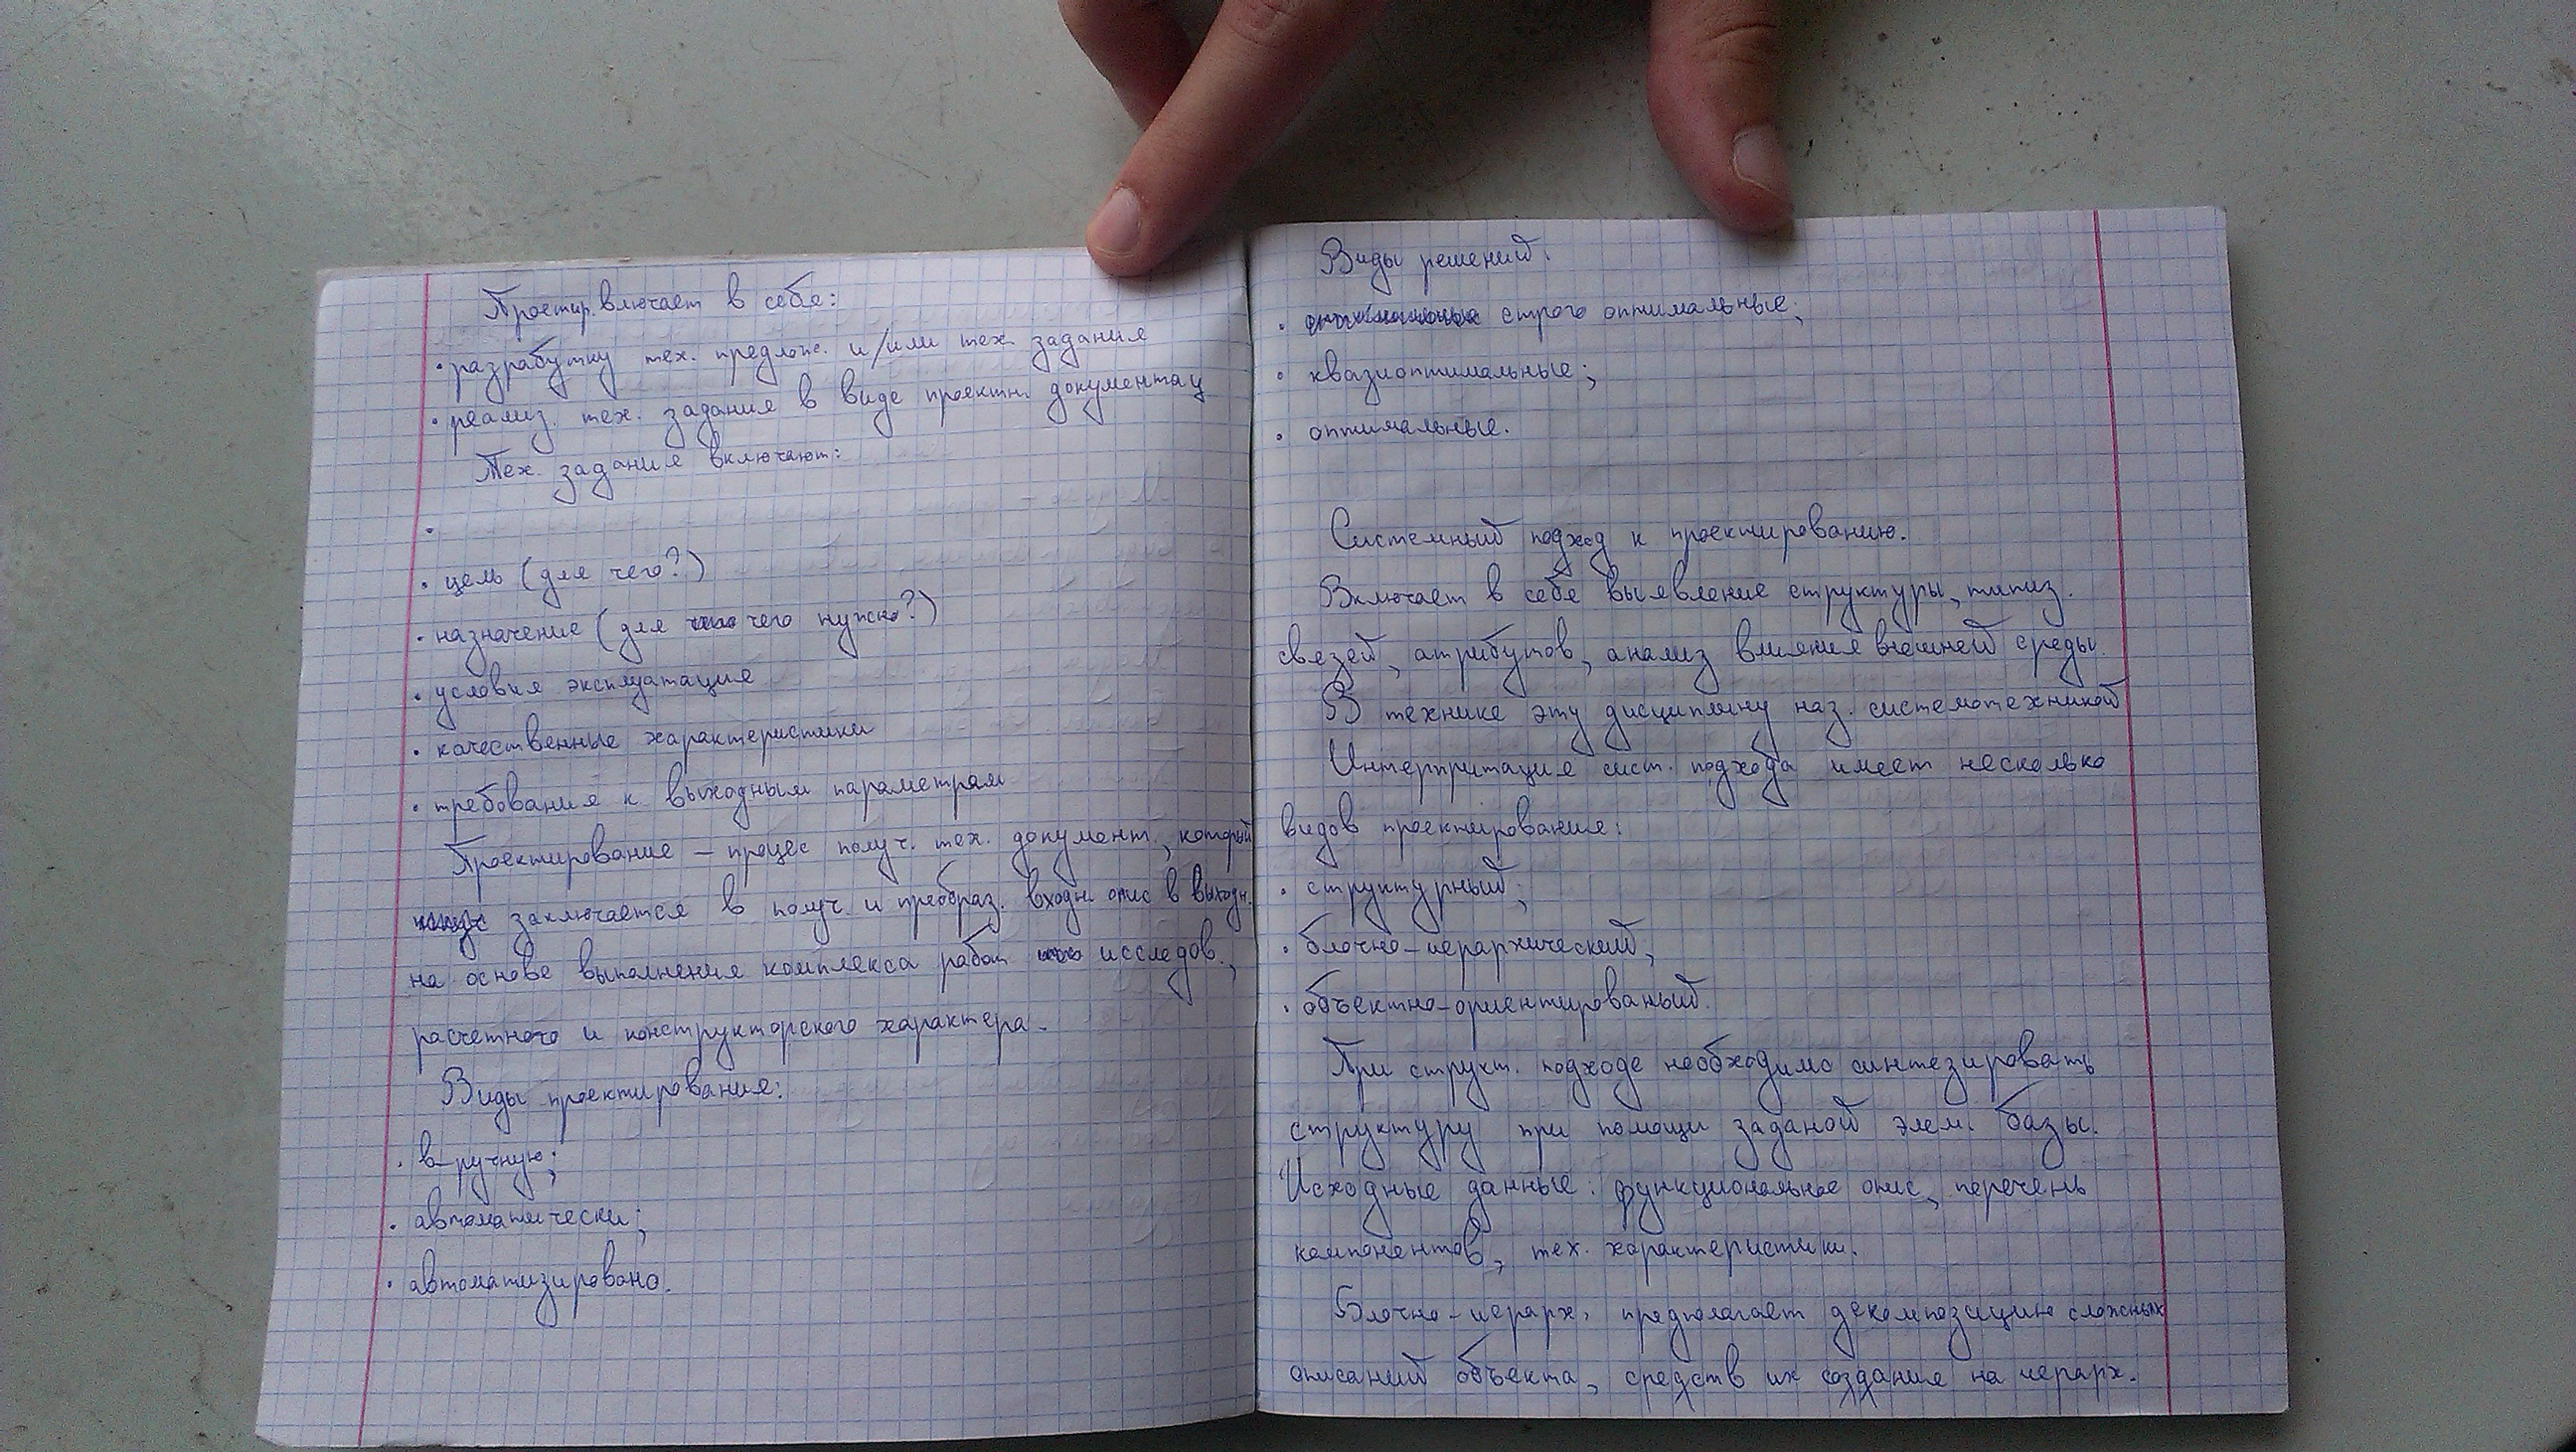 Проектир. влючает в себе:
• разработку тех. предлож. и/или тех. задания
• реализ. тех. задания в виде проектн. документац
Тех. задания включают:
•
• цель (для чего?)
• назначение (для чего нужно?)
• условия эксплуатация
• качественные характеристики
• требования к выходным параметрам
Проектирование – процес получ. тех. документ., который
заключается в получ. и преобраз. входн. опис в выходн.
на основе выполнения комплекса работ исследов.,
расчетного и конструкторского характера.
Виды проектирования:
• в-ручную;
• автоматически;
• автоматизировано.
Виды решений.
• строго оптимальные;
• квазиоптимальные;
• оптимальные.
Системный подход к проектированию.
Включает в себе выявление структуры, типиз.
связей, атрибутов, анализ влияния внешней среды.
В технике эту дисциплину наз. системотехникой
Интерпритация сист. подхода имеет несколько
видов проектирования:
• структурный;
• блочно-иерархический;
• объектно-ориентированый.
При структ. подходе необходимо синтезировать
структуру при помощи заданой элем. базы.
Исходные данные: функциональное опис, перечень
компонентов, тех. характеристики.
Блочно-иерарх. предполагает декомпозицию сложных
описаний объекта, средств их создания на иерарх.